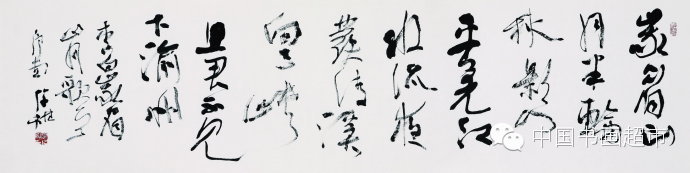 峩眉山
月半輪
秋影入
平羌江
水流夜
發清溪
向三峽
思君不見
下渝州
李白峩眉
山月歌
中国书画超市